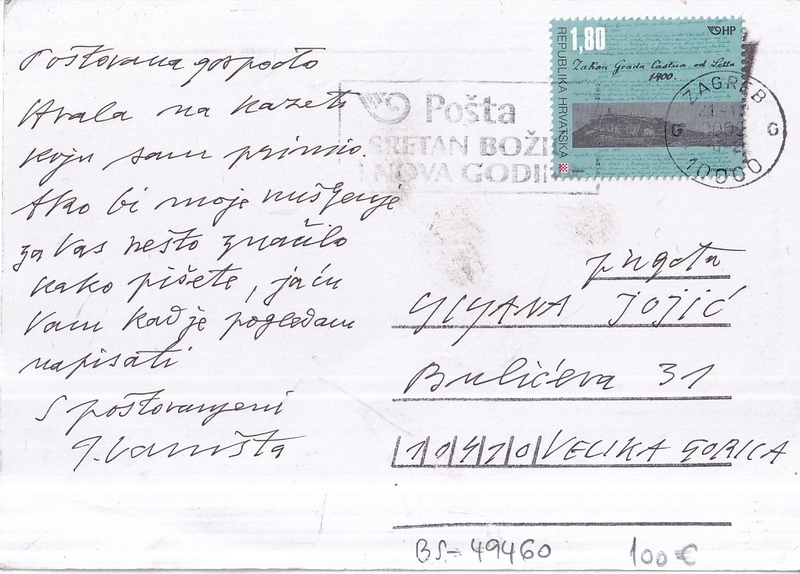 Poštovana gospođo
Hvala na kazeti
koju sam primio.
Ako bi moje mišljenje
za Vas nešto značilo
kako pišete, ja ću
Vam kad je pogledam
napisati
S poštovanjem
J. Vaništa
REPUBLIKA HRVATSKA
1,80
HP
Zakon Grada Kastva od Leta
1400.
Pošta
SRETAN BOŽI
NOVA GODIN
ZAGREB
G G
10000
LJILJANA JOJIĆ
Bulićeva 31
10410 VELIKA GORICA
BS-49460
100€